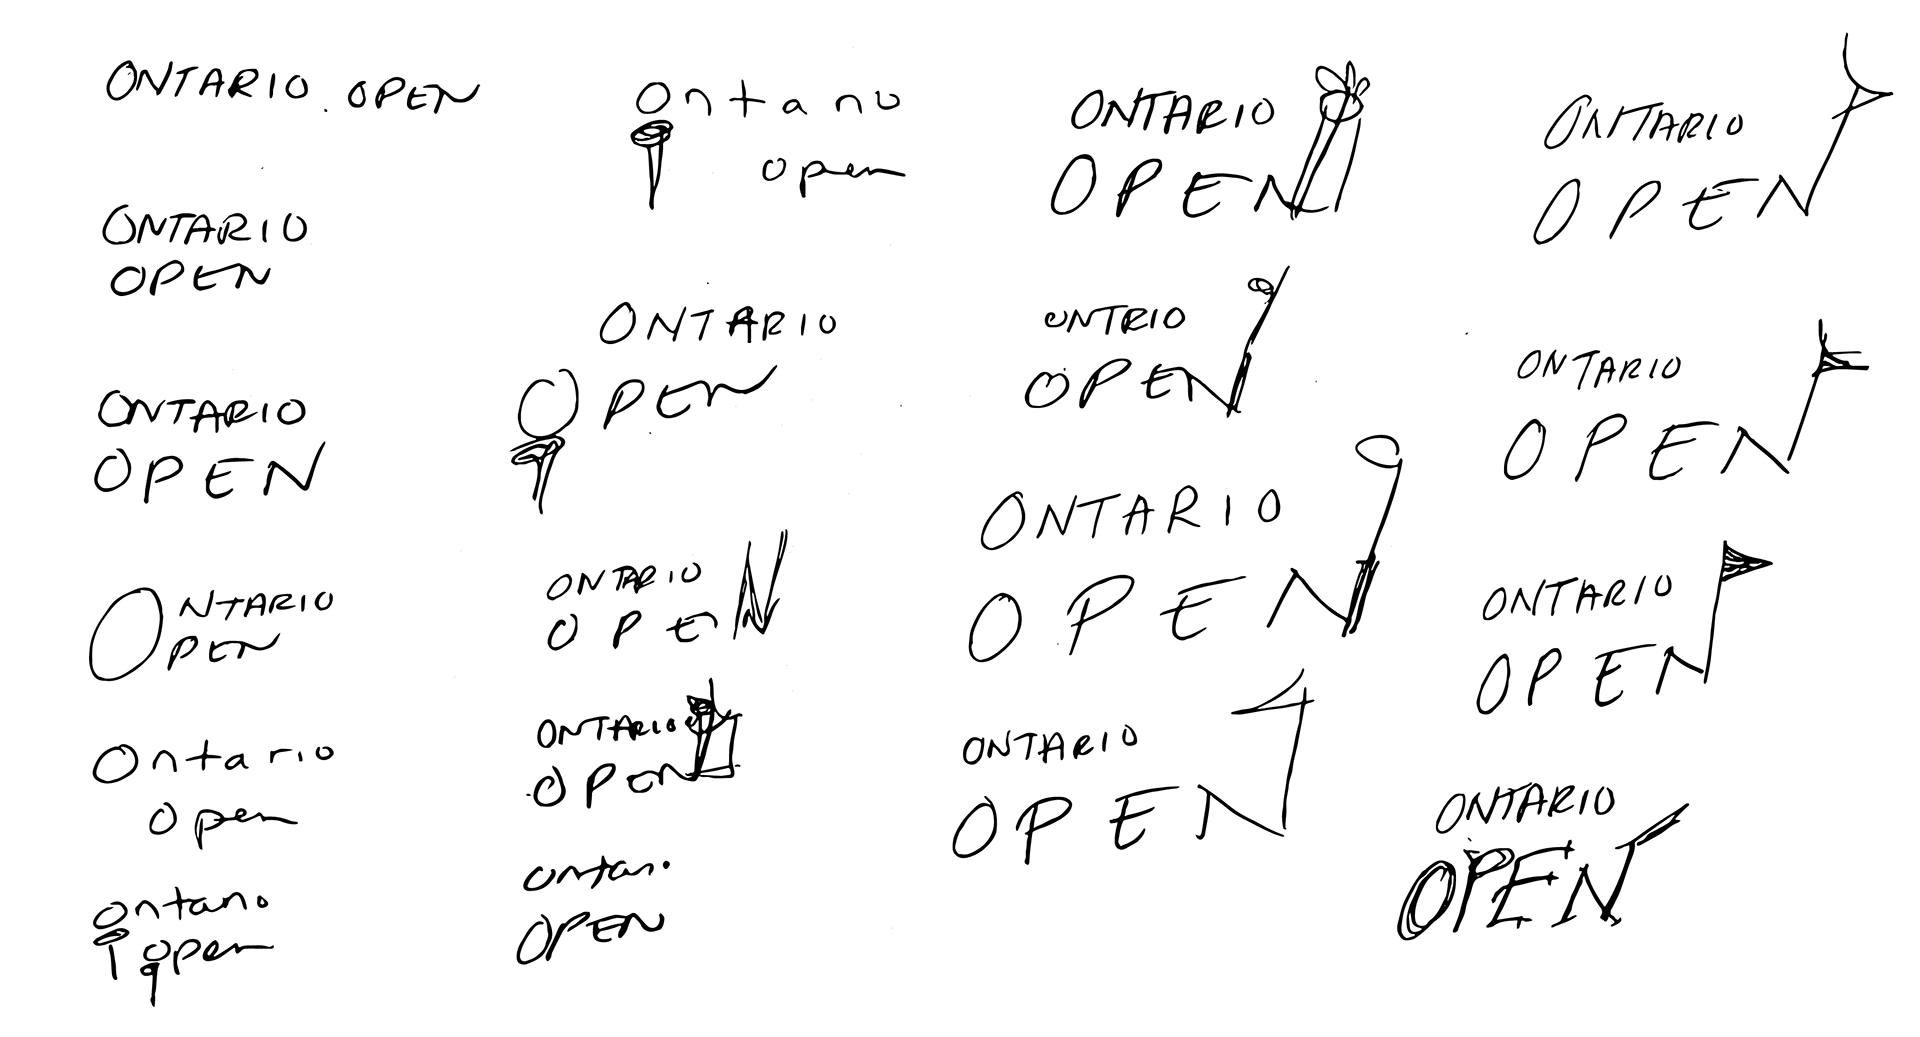 ONTARIO. OPEN
ONTARIO
OPEN
ONTARIO
OPEN
ONTARIO
PEN
Ontario
open
ontario
open
Ontario
open
ONTARIO
OPEN
ONTARIO
OPEN
ONTARIO
OPEN
ontario
OPEN
ONTARIO
OPEN
ONTRIO
OPEN
ONTARIO
OPEN
ONTARIO
OPEN
ONTARIO
OPEN
ONTARIO
OPEN
ONTARIO
OPEN
ONTARIO
OPEN